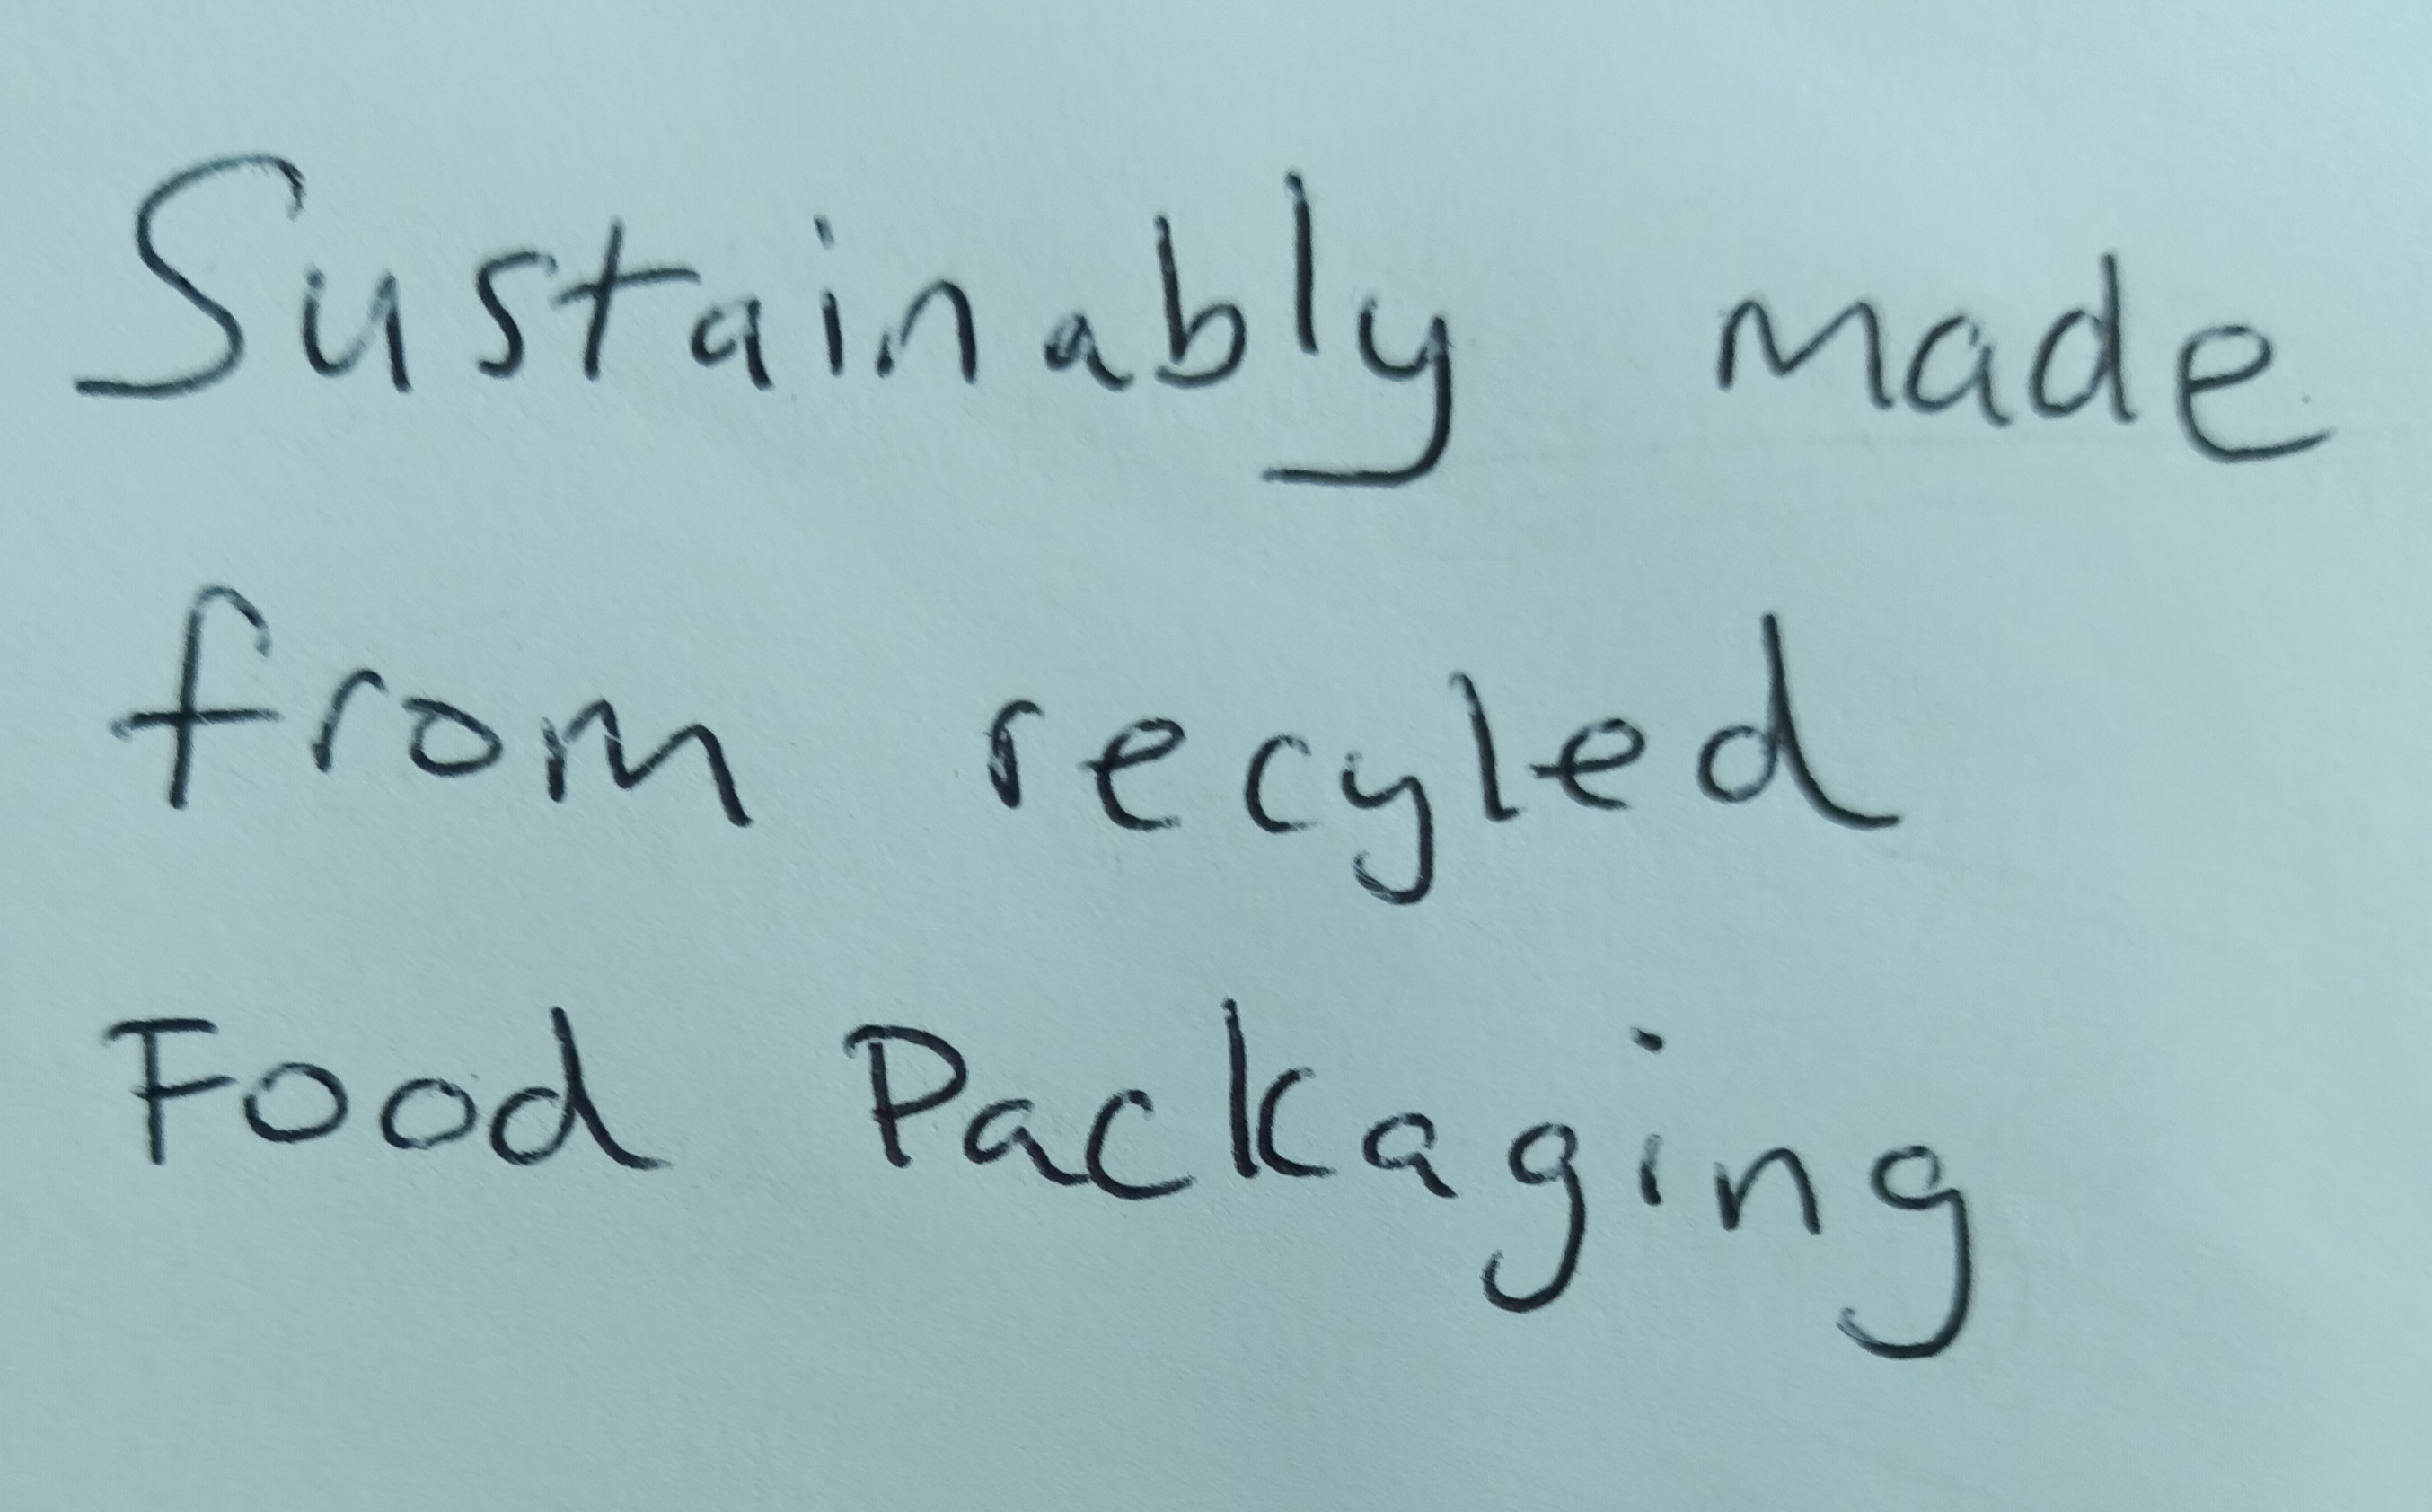 Sustainably made
from recyled
Food Packaging